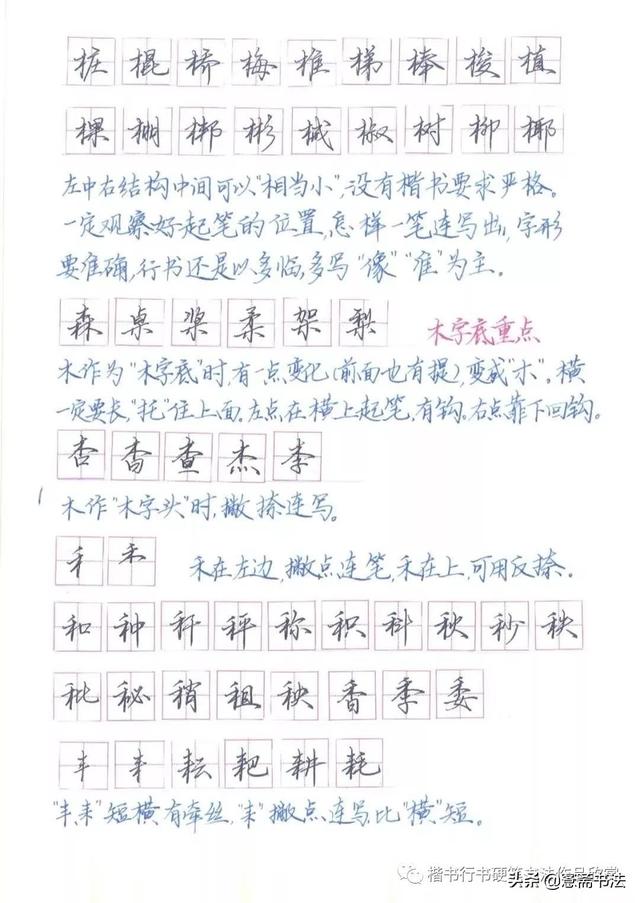 桩棍桥梅椎梯棒梭植
棵棚梆彬械椒树柳椰
左中右结构中间可以“相当小”,没有楷书要求严格。
一定观察好起笔的位置,怎样一笔连写出,字形
要准确,行书还是以多临,多写“像”“准”为主。
森桌桨柔架梨 木字底重点
木作为“木字底”时,有一点变化(前面也有提),变成“朩”。横
一定要长,“托”住上面。左点在横上起笔,有钩。右点靠下回钩。
杏杳查杰李
木作“木字头”时,撇捺连写。
禾禾 禾在左边,撇点连笔,禾在上,可用反捺。
和种秆秤称积科秋秒秩
秕秘稍租秧香季委
丰耒耘耙耕耗
“丰、耒”短横有牵丝,“耒”撇点连写,比“横”短。
楷书行书硬笔书法作品欣赏
头条@慧斋书法